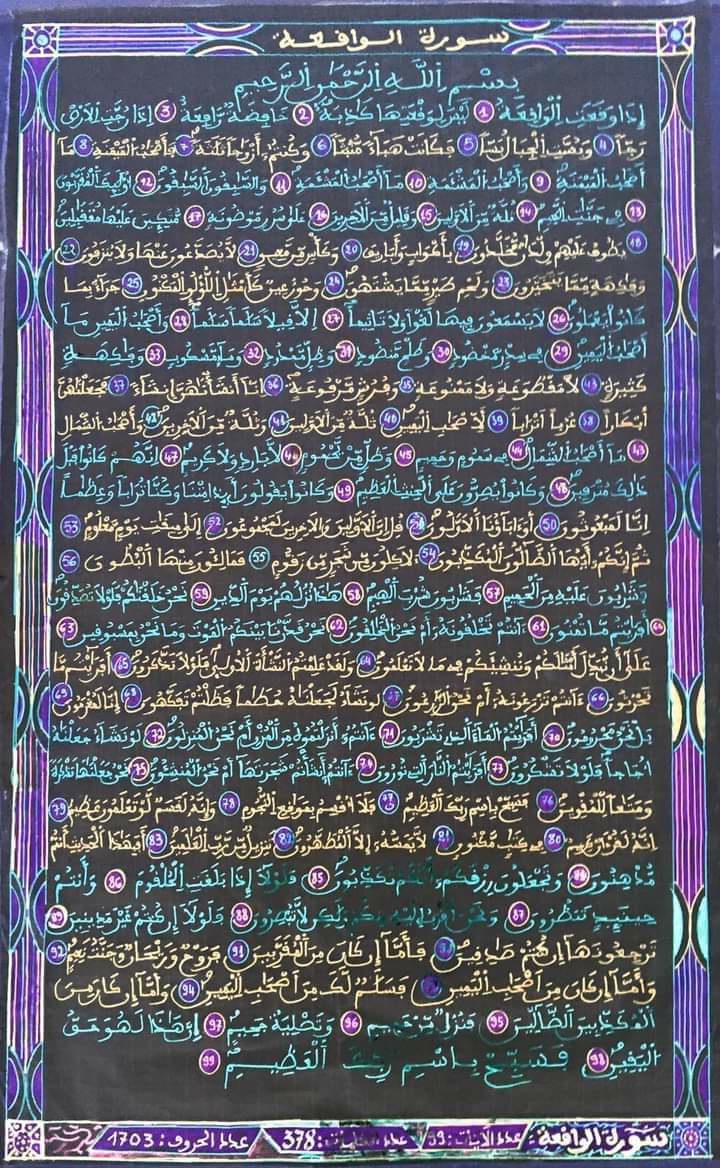 سورة الواقعة
بسم الله الرحمن الرحيم
إذا وقعت الواقعة 1 ليس لوقعتها كاذبة 2 خافضة رافعة 3 إذا رجت الأرض
رجا 4 وبست الجبال بسا 5 فكانت هباء منبثا 6 وكنتم أزواجا ثلثة 7 فأصحب الميمنة 8 ما
أصحب الميمنة 9 وأصحب المشئمة 10 ما أصحب المشئمة 11 والسبقون السبقون 12 أولئك المقربون
13 في جنت النعيم 14 ثلة من الأولين 15 وقليل من الأخرين 16 على سرر موضونة 17 متكئين عليها متقبلين
18 يطوف عليهم ولدن مخلدون 19 بأكواب وأباريق 20 وكأس من معين 21 لا يصدعون عنها ولا ينزفون 22
وفكهة مما يتخيرون 23 ولحم طير مما يشتهون 24 وحور عين كأمثل اللؤلؤ المكنون 25 جزاء بما
كانوا يعملون 26 لا يسمعون فيها لغوا ولا تأثيما 27 إلا قيلا سلما سلما 28 وأصحب اليمين ما
أصحب اليمين 29 في سدر مخضود 30 وطلح منضود 31 وظل ممدود 32 وماء مسكوب 33 وفكهة
كثيرة 34 لا مقطوعة ولا ممنوعة 35 وفرش مرفوعة 36 إنا أنشأنهن إنشاء 37 فجعلنهن
أبكارا 38 عربا أترابا 39 لأصحب اليمين 40 ثلة من الأولين 41 وثلة من الأخرين 42 وأصحب الشمال
43 ما أصحب الشمال 44 في سموم وحميم 45 وظل من يحموم 46 لا بارد ولا كريم 47 إنهم كانوا قبل
ذلك مترفين 48 وكانوا يصرون على الحنث العظيم 49 وكانوا يقولون أيذا متنا وكنا ترابا وعظما
إنا لمبعوثون 50 أو ءاباؤنا الأولون 51 قل إن الأولين والأخرين لمجموعون 52 إلى ميقت يوم معلوم 53
ثم إنكم أيها الضالون المكذبون 54 لأكلون من شجر من زقوم 55 فمالئون منها البطون 56
فشربون عليه من الحميم 57 فشربون شرب الهيم 58 هذا نزلهم يوم الدين 59 نحن خلقنكم فلولا تصدقون
60 أفرأيتم ما تمنون 61 ءأنتم تخلقونه أم نحن الخلقون 62 نحن قدرنا بينكم الموت وما نحن بمسبوقين 63
على أن نبدل أمثلكم وننشئكم في ما لا تعلمون 64 ولقد علمتم النشأة الأولى فلولا تذكرون 65 أفرأيتم ما
تحرثون 66 ءأنتم تزرعونه أم نحن الزرعون 67 لو نشاء لجعلنه حطما فظلتم تفكهون 68 إنا لمغرمون 69
بل نحن محرومون 70 أفرأيتم الماء الذي تشربون 71 ءأنتم أنزلتموه من المزن أم نحن المنزلون 72 لو نشاء جعلنه
أجاجا فلولا تشكرون 73 أفرأيتم النار التي تورون 74 ءأنتم أنشأتم شجرتها أم نحن المنشئون 75 نحن جعلنها تذكرة
ومتعا للمقوين 76 فسبح باسم ربك العظيم 77 فلا أقسم بموقع النجوم 78 وإنه لقسم لو تعلمون عظيم 79
إنه لقرءان كريم 80 في كتب مكنون 81 لا يمسه إلا المطهرون 82 تنزيل من رب العلمين 83 أفبهذا الحديث أنتم
مدهنون 84 وتجعلون رزقكم أنكم تكذبون 85 فلولا إذا بلغت الحلقوم 86 وأنتم
حينئذ تنظرون 87 ونحن أقرب إليه منكم ولكن لا تبصرون 88 فلولا إن كنتم غير مدينين 89
ترجعونها إن كنتم صدقين 90 فأما إن كان من المقربين 91 فروح وريحان وجنت نعيم 92
وأما إن كان من أصحب اليمين 93 فسلم لك من أصحب اليمين 94 وأما إن كان من
المكذبين الضالين 95 فنزل من حميم 96 وتصلية جحيم 97 إن هذا لهو حق
اليقين 98 فسبح باسم ربك العظيم 99
سورة الواقعة عدد الآيات : 99 عدد الكلمات : 378 عدد الحروف : 1703